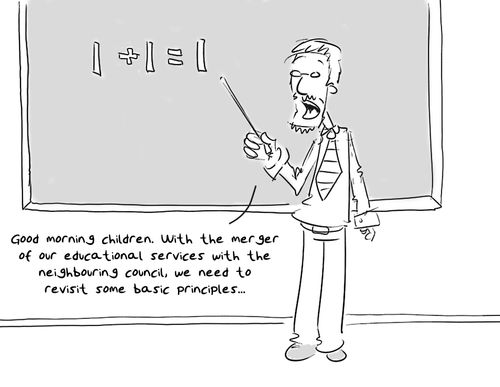 1 + 1 = 1
Good morning children. With the merger
of our educational services with the
neighbouring council, we need to
revisit some basic principles...